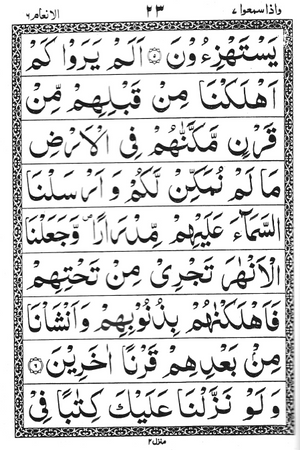 واذا سمعوا ٧ ٢٣ الانعام ٦
يَسْتَهْزِءُوْنَ ۝٥ اَلَمْ يَرَوْا كَمْ
اَهْلَكْنَا مِنْ قَبْلِهِمْ مِّنْ
قَرْنٍ مَّكَّنّٰهُمْ فِى الْاَرْضِ
مَا لَمْ نُمَكِّنْ لَّكُمْ وَ اَرْسَلْنَا
السَّمَآءَ عَلَيْهِمْ مِّدْرَارًا ۪ وَّجَعَلْنَا
الْاَنْهٰرَ تَجْرِىْ مِنْ تَحْتِهِمْ
فَاَهْلَكْنٰهُمْ بِذُنُوْبِهِمْ وَاَنْشَاْنَا
مِنْۢ بَعْدِهِمْ قَرْنًا اٰخَرِيْنَ ۝٦
وَلَوْ نَزَّلْنَا عَلَيْكَ كِتٰبًا فِىْ
منزل ٢